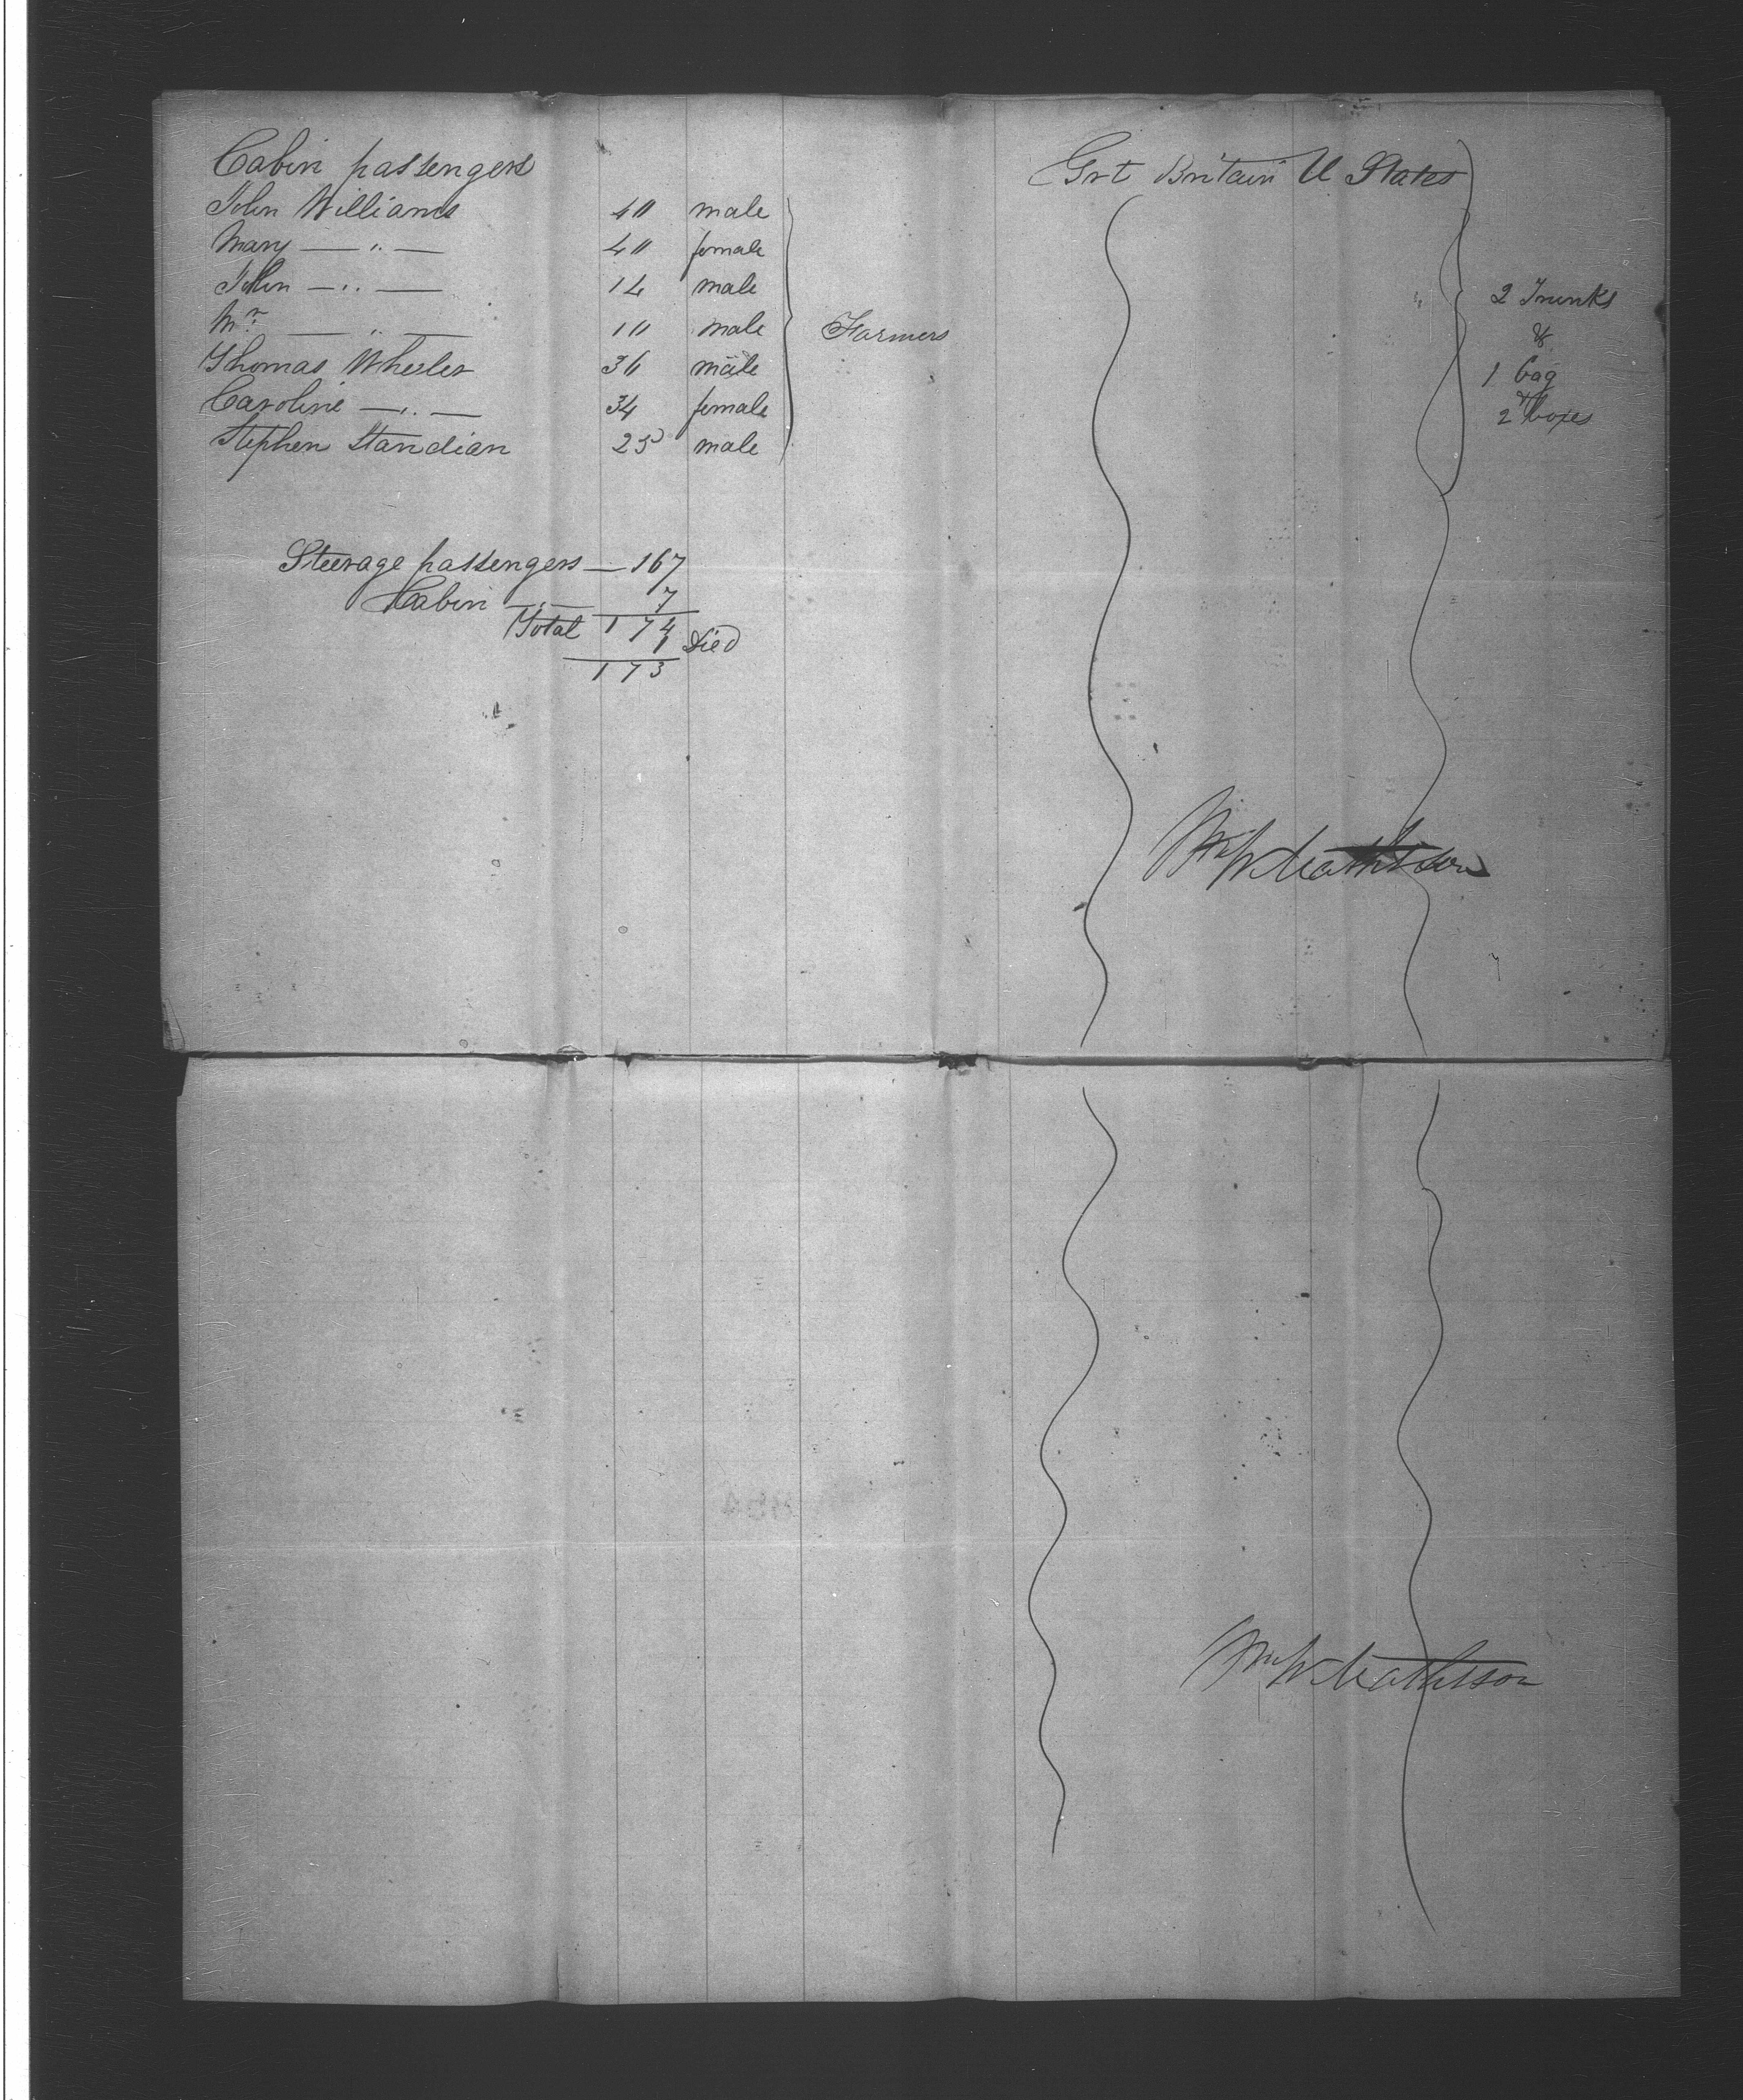 Cabin passengers Grt Britain U States
John Williams 40 male
Mary — " — 40 female
John — " — 14 male 2 Trunks
Wm — " — 10 male Farmers &
Thomas Wheeler 36 male 1 bag
Caroline — " — 34 female & 2 boxes
Stephen Standian 25 male
Steerage passengers — 167
Cabin — " — 7
Total 174
1 Died
173
Wm W Mathesson
Wm W Mathesson